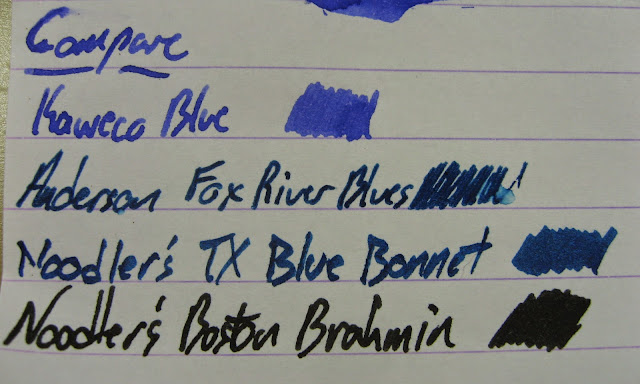 Compare
Kaweco Blue
Anderson Fox River Blues
Noodler's TX Blue Bonnet
Noodler's Boston Brahmin